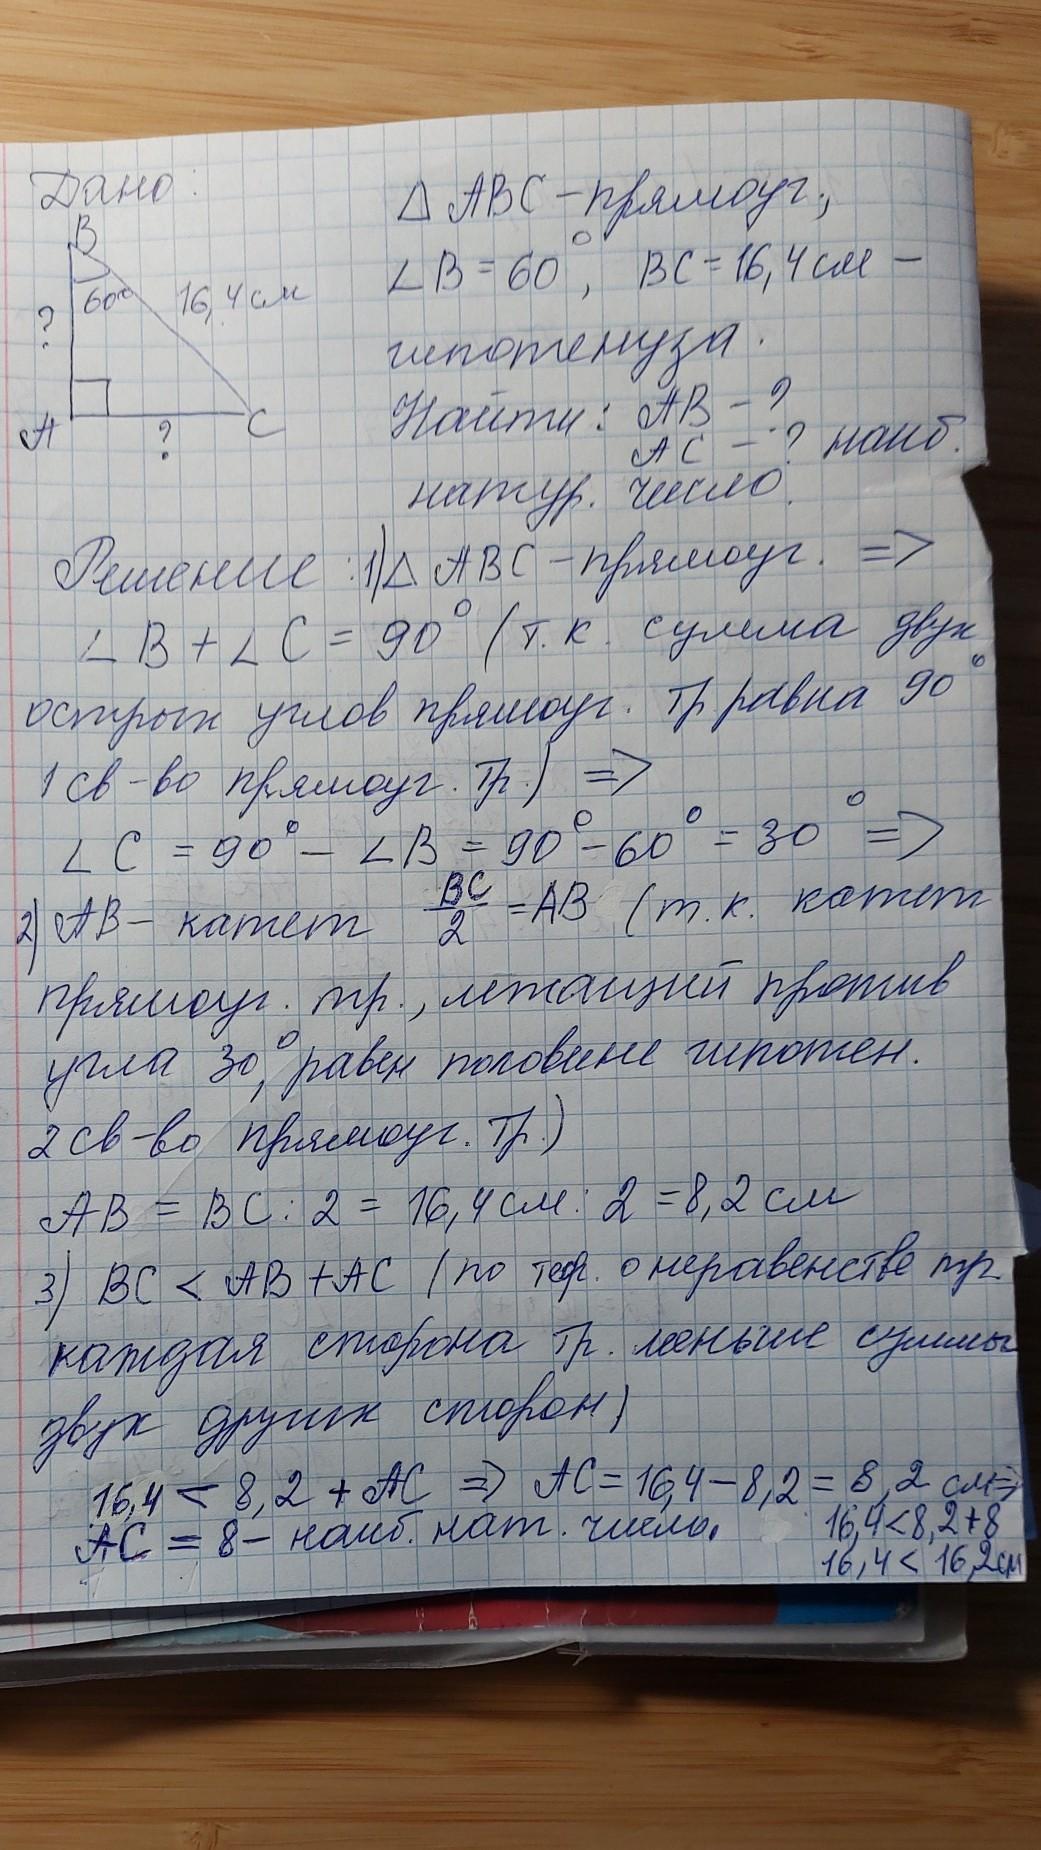 Дано:
B
60°
16,4 см
?
A
?
C
△ ABC - прямоуг.,
∠B = 60°, BC = 16,4 см –
гипотенуза.
Найти: AB - ?
AC - ? наиб.
натур. число.
Решение: 1) △ ABC - прямоуг. =>
∠B + ∠C = 90° (т.к. сумма двух
острых углов прямоуг. тр равна 90°
1 св-во прямоуг. тр.) =>
∠C = 90° - ∠B = 90° - 60° = 30° =>
2) AB - катет BC/2 = AB (т.к. катет
прямоуг. тр., лежащий против
угла 30°, равен половине гипотен.
2 св-во прямоуг. тр.)
AB = BC : 2 = 16,4 см : 2 = 8,2 см
3) BC < AB + AC (по теор. о неравенстве тр.
каждая сторона тр. меньше суммы
двух других сторон)
16,4 < 8,2 + AC => AC = 16,4 - 8,2 = 8,2 см =>
AC = 8 - наиб. нат. число.
16,4 < 8,2 + 8
16,4 < 16,2 см